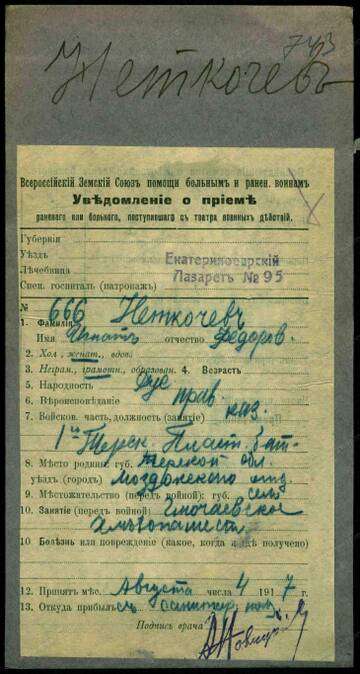 743
Неткочевъ
Всероссійскій Земскій Союзъ помощи больнымъ и ранен. воинамъ
Увѣдомленіе о пріемѣ
раненаго или больного, поступившаго съ театра военныхъ дѣйствій.
Губернія
Уѣздъ
Лѣчебница
Спец. госпиталь (патронажъ)
Екатеринодарскій
Лазаретъ № 95
№ 666 Неткочевъ
1. Фамилія
Имя Игнатъ отчество Федоров.
2. Хол., женат., вдов.
3. Неграм., грамотн., образован. 4. Возрастъ
5. Народность Рус
6. Вѣроисповѣданіе прав.
7. Войсков. часть, должность (занятіе) каз.
1й Терск. Пласт. бат.
8. Мѣсто родины: губ. Терской обл.
уѣздъ (городъ) Моздокскаго отд.
9. Мѣстожительство (передъ войной): губ.
10. Занятіе (передъ войной)
Хлѣбопашест.
10. Болѣзнь или поврежденіе (какое, когда и гдѣ получено)
12. Принятъ мѣс. Августа числа 4 1917 г.
13. Откуда прибылъ съ санитар.
Подпись врача